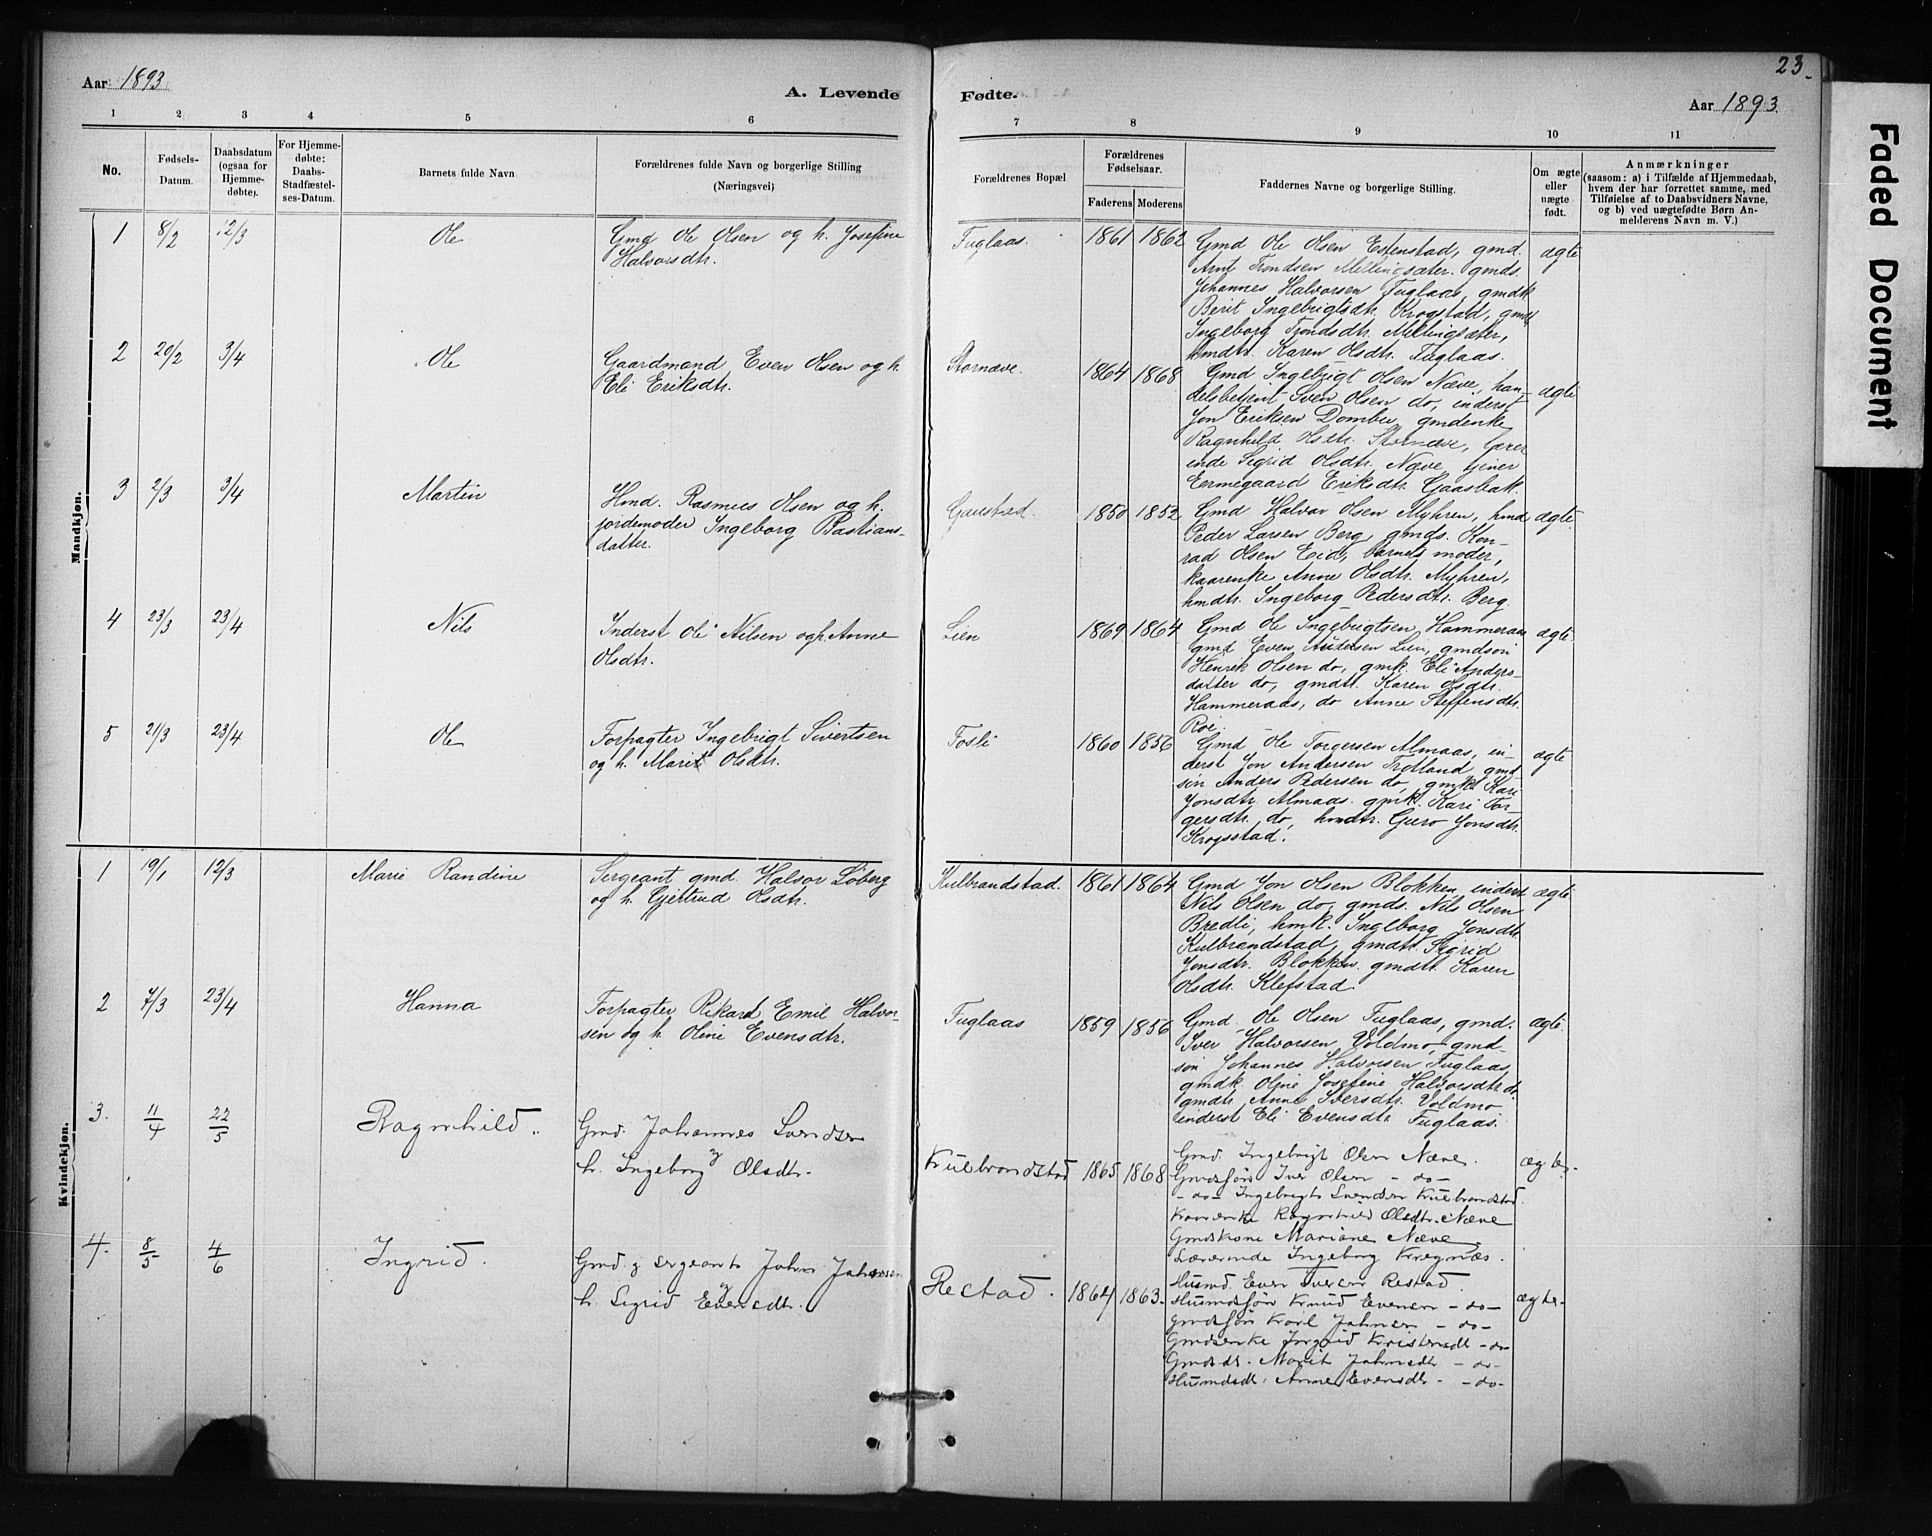 23.
Aar 1893
A. Levende
Fødte.
Aar 1893.
1 2 3 4 5 6
7 8 9 10 11
No.
Fødsels-
Datum.
Daabsdatum
(ogsaa for
Hjemme-
døbte).
For Hjemme-
døbte:
Daabs-
Stadfæstel-
ses-Datum.
Barnets fulde Navn
Forældrenes fulde Navn og borgerlige Stilling
(Næringsvei)
Forældrenes Bopæl
Forældrenes
Fødselsaar.
Faderens Moderens
Faddernes Navne og borgerlige Stilling.
Om ægte
eller
uægte
født.
Anmærkninger
(saasom: a) i Tilfælde af Hjemmedaab,
hvem der har forrettet samme, med
Tilføielse af to Daabsvidners Navne,
og b) ved uægtefødte Børn An-
melderens Navn m. V.)
Faded Document
Mandkjøn.
1 8/2 12/3 Ole
Gmd Ole Olsen og h. Josefine
Halvorsdtr.
Fuglaas. 1861 1862
Gmd Ole Olsen Estenstad, gmd.
Arnt Trondsen Mellingsæter. gmds.
Johannes Halvorsen Fuglaas, gmdk
Berit Ingebrigtsdtr. Krogstad, gmdt
Ingeborg Trondsdtr. Mellingsæter,
hmdtr. Karen Olsdtr. Fuglaas.
ægte
2 20/2 3/4 Ole
Gaardmand Even Olsen og h.
Eli Eriksdtr.
Stornæve. 1864 1868
Gmd Ingebrigt Olsen Næve, han-
delsbetjent Sven Olsen do, inderst
Jon Eriksen Dombu, gmdenke
Ragnhild Olsdtr. Stornæve, lærer
inde Sigrid Olsdtr. Næve, tjener
Ermegaard Eriksdtr. Gaasbak.
ægte
3 2/3 3/4 Martin
Hmd. Rasmus Olsen og h.
jordemoder Ingeborg Bastians-
datter.
Gaustad. 1850 1852
Gmd Halvor Olsen Myhren, hmd
Peder Larsen Berg, gmds. Kon-
rad Olsen Eid, barnets moder,
kaarenke Anne Olsdtr. Myhren,
hmdtr. Ingeborg Pedersdtr. Berg.
ægte
4 23/3 23/4 Nils
Inderst Ole Nilsen og h. Anne
Olsdtr.
Lien 1869 1864
Gmd Ole Ingebrigtsen Hammeraas
gmd Even Andersen Lien, gmdsøn
Henrik Olsen do, gmk. Eli Anders-
datter do, gmdtr. Karen Olsdtr.
Hammeraas, do Anne Steffensdtr.
Roe.
ægte
5 21/3 23/4 Ole
Forpagter Ingebrigt Sivertsen
og h. Marit Olsdtr.
Fosli 1860 1856
Gmd Ole Torgersen Almaas, in-
derst Jon Andersen Trotland gmd-
søn Anders Pedersen do, gmk. Kari
Jonsdtr. Almaas. gmk. Kari Tor-
gersdtr. do, hmdtr. Guro Jonsdtr.
Krogstad.
ægte
Kvindekjøn.
1 19/1 12/3 Marie Randine
Sergeant gmd. Halvor Løberg
og h. Gjertrud Olsdtr.
Kulbrandstad. 1861 1864
Gmd Jon Olsen Blokken, inderst
Nils Olsen do, gmds. Nils Olsen
Bredli, hmk. Ingeborg Jonsdtr.
Kulbrandstad, gmdtr. Sigrid
Jonsdtr. Blokken. gmdtr. Karen
Olsdtr. Klefstad.
ægte
2 7/3 23/4 Hanna
Forpagter Rikard Emil Halvor-
sen og h. Oline Evensdtr.
Fuglaas 1859 1856
Gmd. Ole Olsen Fuglaas, gmd.
Iver Halvorsen Voldmo, gmd-
søn Johannes Halvorsen Fuglaas,
gmdk. Oline Josefine Halvorsdtr. do,
gmdtr. Anne Iversdtr. Voldmo
inderst Eli Evensdtr. Fuglaas.
ægte
3. 11/4 22/5 Ragnhild.
Gmd. Johannes Svendsen
og
h. Ingeborg Olsdtr.
Kulbrandstad 1865 1868
Gmd. Ingebrigt Olsen Næve.
Gmdsøn Iver Olsen - do -
- do - Ingebrigt Svendsen Kulbrandstad.
Kaarenke Ragnhild Olsdtr. Næve
Gmdskone Mariane Næve.
Lærerinde Ingeborg Kregnæs.
ægte.
4. 8/5 4/6 Ingrid.
Gmd. & sergeant John Johnsen
og
h. Sigrid Evensdtr.
Restad. 1864 1863.
Husmd. Even Iversen Restad.
Husmdsøn Knud Evensen - do -
Gmdsøn Karl Johnsen - do -
Gmdsenke Ingrid Kristensdt - do
Gmdsdt. Marit Johnsdt - do -
Husmdsdt. Anne Evensdt. - do -
ægte.